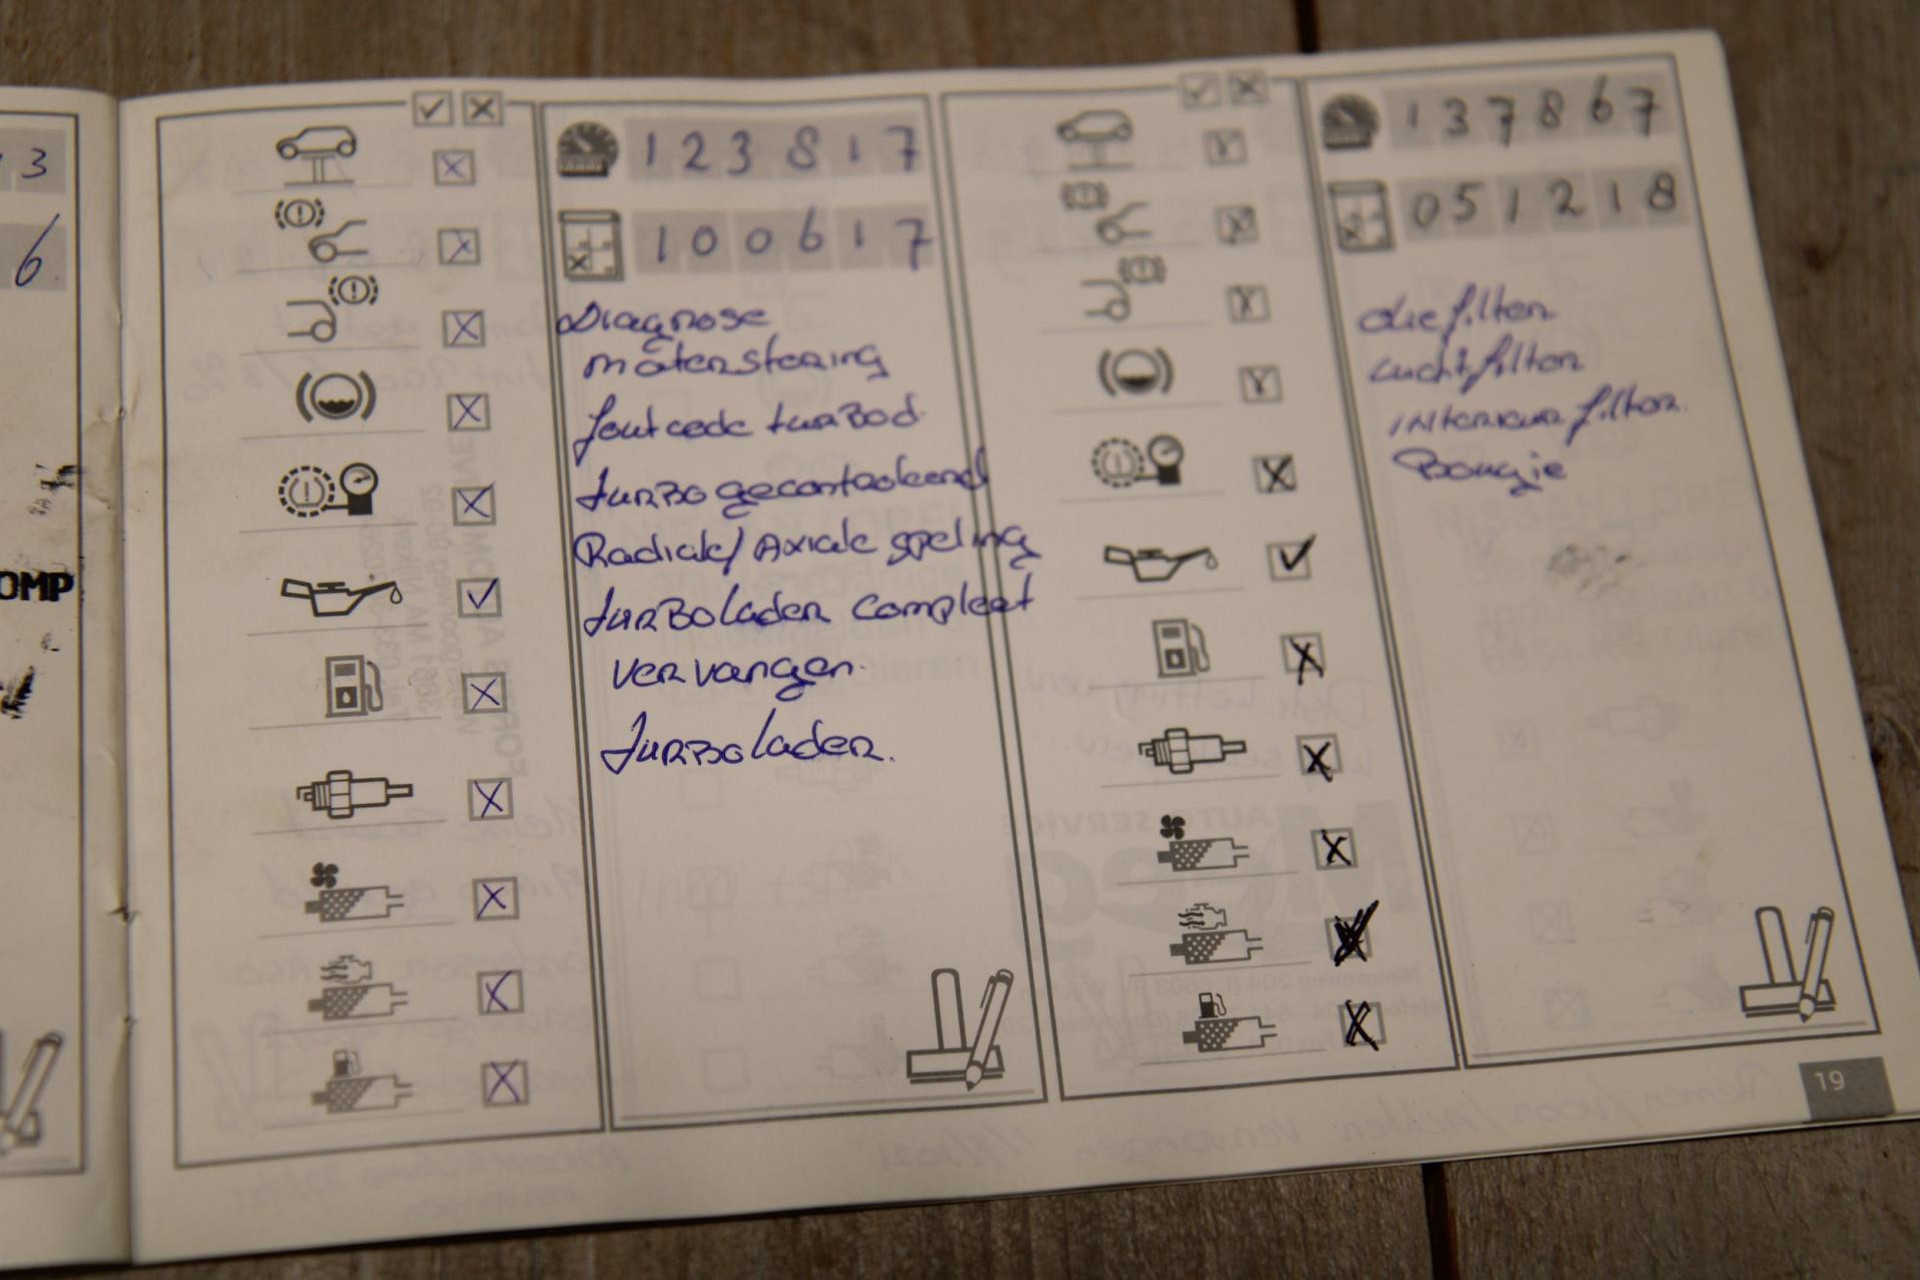 3
6
OMP
123817
100617
Diagnose
motorstoring
foutcode turbod
turbo gecontroleerd
Radiale/Axiale speling
turbolader compleet
vervangen.
Turbolader.
137867
051218
oliefilter
Luchtfilter
interieurfilter.
Bougie
19